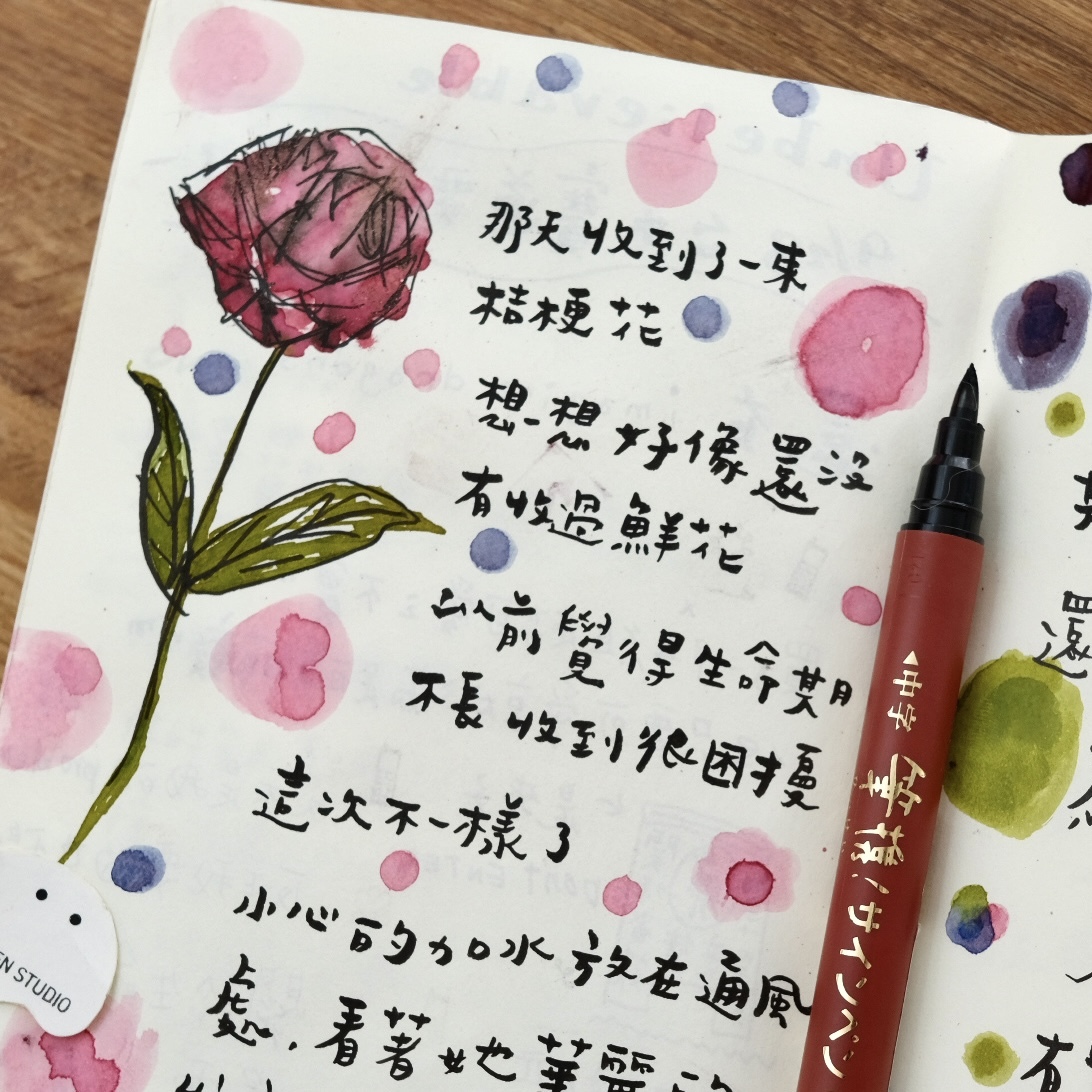 那天收到了一束
桔梗花
想一想好像還沒
有收過鮮花
以前覺得生命期
不長收到很困擾
這次不一樣了
小心的加水放在通風
處，看著她華麗的
EN STUDIO
中字 筆擬!サインペン
還
有